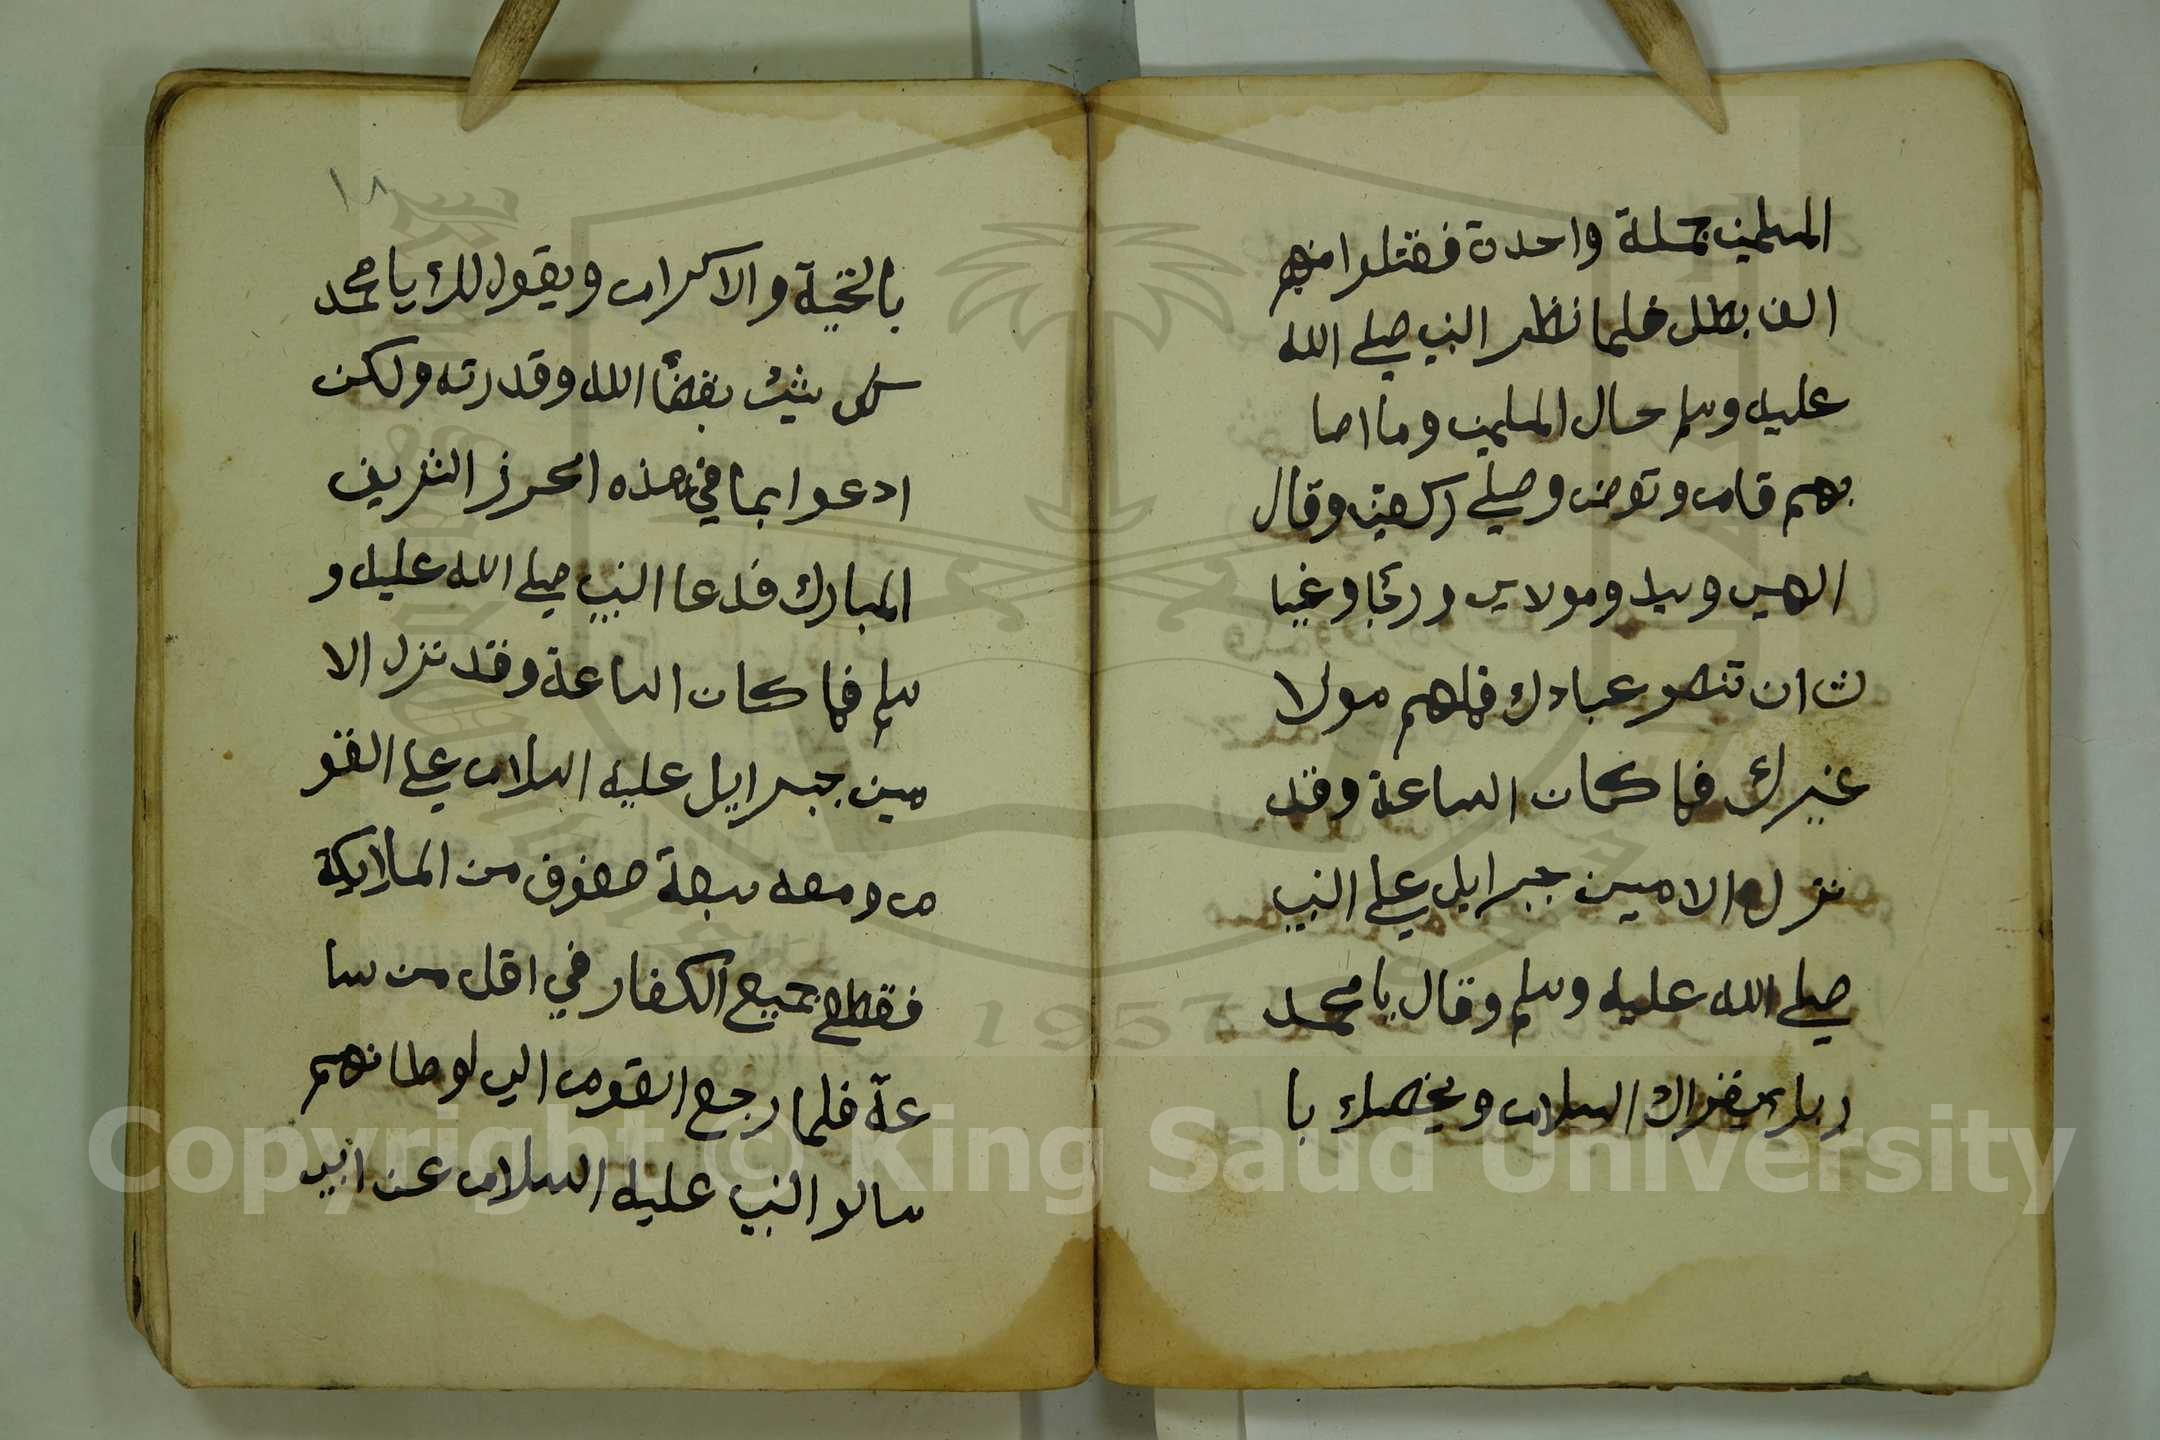 المسلمين جملة واحدة فقتلوا منهم
الف بطل فلما نظر النبي صلي الله
عليه وسلم حال المسلمين وما اصا
بهم قام وتوضى وصلي ركعتين وقال
الهي وسيد ومولاي ورجا وغيا
ث ان تنصر عبادك فالهم مولا
غيرك فما كان الساعة وقد
نزل الامين جبرايل علي النبي
صلي الله عليه وسلم وقال يا محمد
ربك يقراك السلام ويخصك با
١٨
بالتحية والاكرام ويقول لك يا محمد
كل شيئ بقضا الله وقدرته ولكن
ادعوا بما في هذه الحرز الشريف
المبارك فدعا النبي صلي الله عليه و
سلم فما كان الساعة وقد نزل الا
مين جبرايل عليه السلام علي القو
م ومعه سبعة صفوف من الملايكة
فقطع جميع الكفار في اقل من سا
عة فلما رجع القوم الي اوطانهم
سالو النبي عليه السلام عن
Copyright © King Saud University
1957